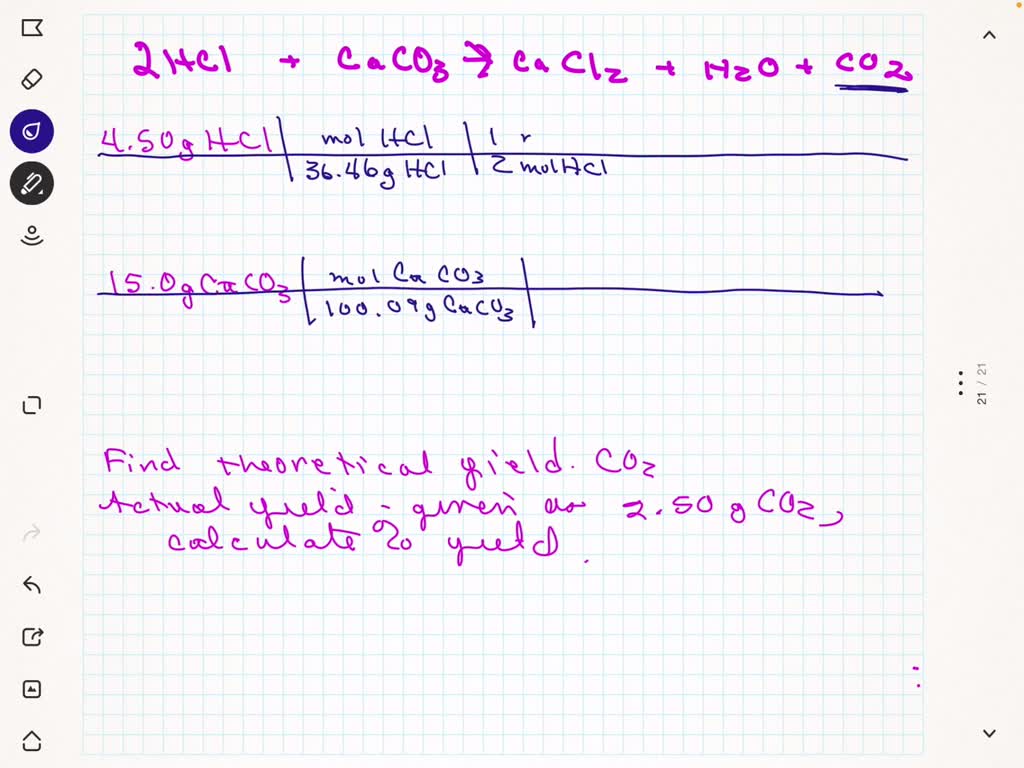 2HCl + CaCO3 → CaCl2 + H2O + CO2
4.50g HCl | mol HCl | 1
36.46g HCl | 2 mol HCl
15.0g CaCO3 | mol CaCO3
100.09g CaCO3
Find theoretical yield. CO2
Actual yield - given as 2.50 g CO2,
calculate % yield.
21 / 21